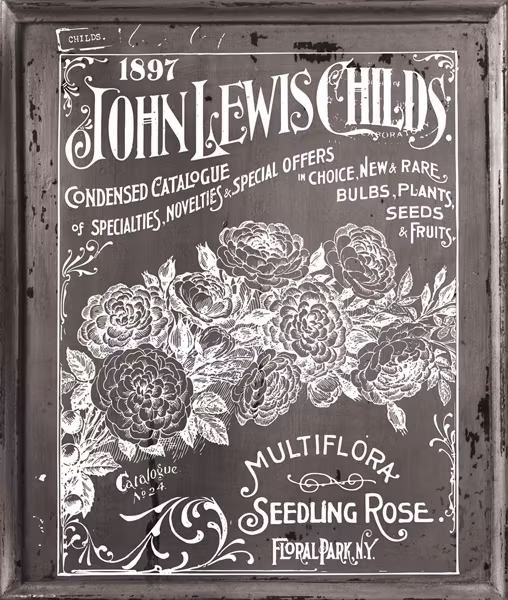 CHILDS.
1897
JOHN LEWIS CHILDS.
CONDENSED CATALOGUE
OF SPECIALTIES, NOVELTIES & SPECIAL OFFERS
IN CHOICE, NEW & RARE
BULBS, PLANTS,
SEEDS
& FRUITS.
Catalogue
No 24.
MULTIFLORA
SEEDLING ROSE.
FLORAL PARK, N.Y.